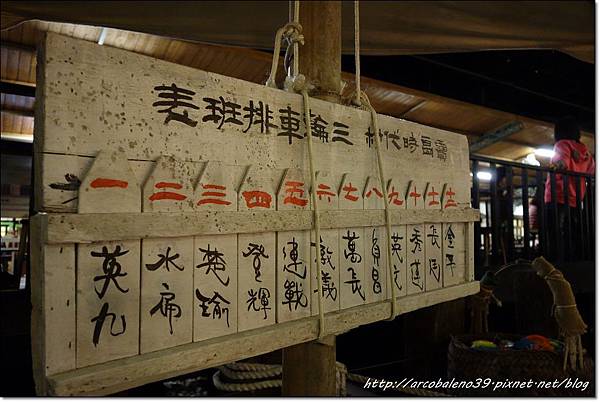 寶島時代村 三輪車排班表
一 二 三 四 五 六 七 八 九 十 十一 十二
英九
水扁
楚瑜
登輝
連戰
敦義
萬長
貞昌
英文
秀蓮
長
金平
http://arcobaleno39.pixnet.net/blog